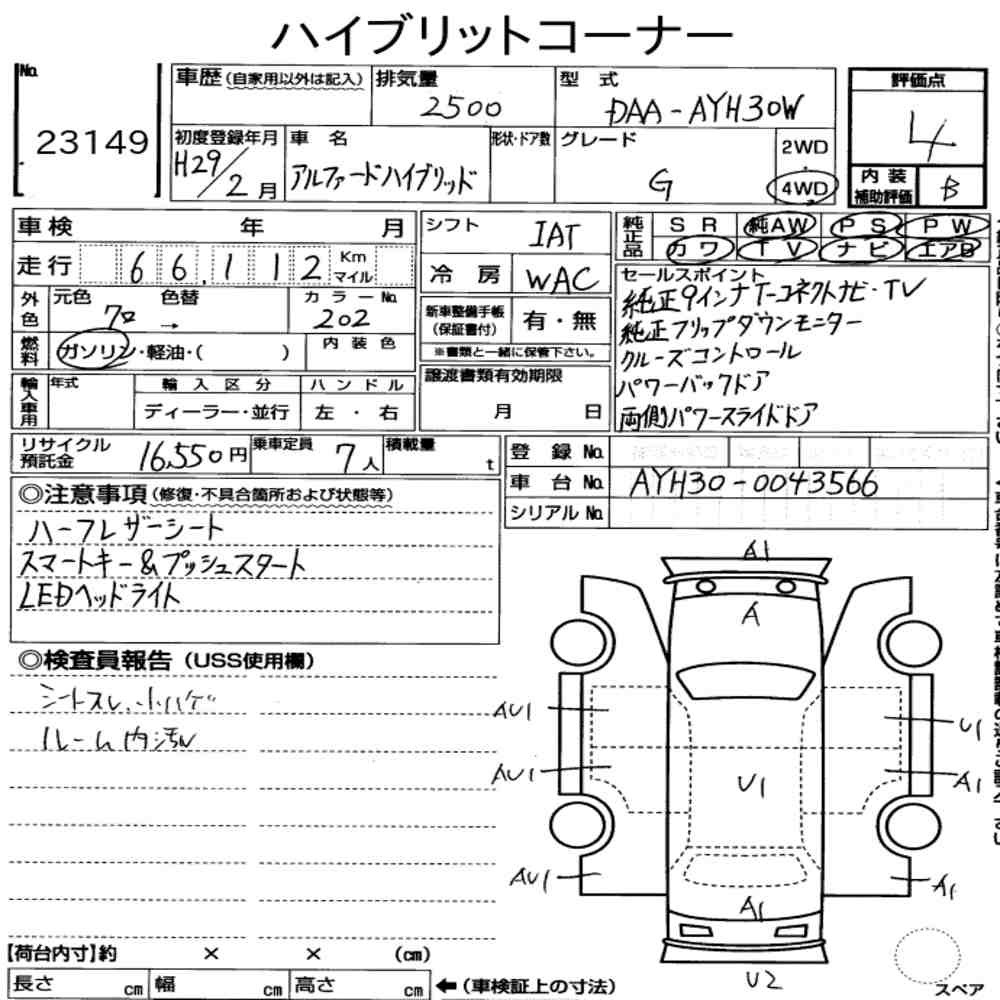 ハイブリットコーナー
No.
23149
車歴(自家用以外は記入)
排気量
2500
型 式
DAA-AYH30W
評価点
4
初度登録年月
H29/2月
車 名
アルファードハイブリッド
形状・ドア数
グレード
G
2WD
・
4WD
内 装
補助評価
B
車検 年 月
走行 66,112 Km
マイル
シフト
IAT
冷 房
WAC
純正品
SR 純AW PS PW
カワ TV ナビ エアB
セールスポイント
純正9インナT-コネクトナビ・TV
純正フリップダウンモニター
クルーズコントロール
パワーバックドア
両側パワースライドドア
外色
元色 色替
クロ →
カラーNo.
202
新車整備手帳
(保証書付)
有・無
※書類と一緒に保管下さい。
燃料
ガソリン・軽油・( )
内 装 色
輸入車用
年式
輸 入 区 分
ディーラー・並行
ハ ン ド ル
左 ・ 右
譲渡書類有効期限
月 日
リサイクル
預託金
16,550円
乗車定員
7人
積載量
t
登 録 No.
車 台 No.
AYH30-0043566
シリアル No.
◎注意事項(修復・不具合箇所および状態等)
ハーフレザーシート
スマートキー&プッシュスタート
LEDヘッドライト
◎検査員報告(USS使用欄)
シートスレ、小ハゲ
ルーム内汚れ
A1
A
AU1
U1
AU1
U1
A1
AU1
A1
A1
U2
スペア
【荷台内寸】約 × × (cm)
長さ cm 幅 cm 高さ cm ←(車検証上の寸法)